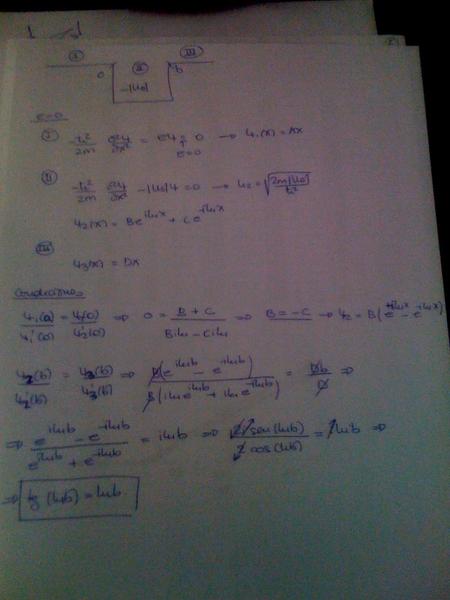 I II III
0 b
-|U₀|
E=0
I) -ħ²/2m ∂²ψ/∂x² = Eψ = 0 → ψ₁(x) = Ax
E=0
II) -ħ²/2m ∂²ψ/∂x² - |U₀|ψ = 0 → k₂ = √(2m|U₀|/ħ²)
ψ₂(x) = Be^{ik₁x} + Ce^{-ik₁x}
III) ψ₃(x) = Dx
Condiciones
ψ₁(0)/ψ₁'(0) = ψ₂(0)/ψ₂'(0) ⇒ 0 = (B + C)/(Bik₁ - Cik₁) ⇒ B = -C → ψ₂ = B(e^{ik₁x} - e^{-ik₁x})
ψ₂(b)/ψ₂'(b) = ψ₃(b)/ψ₃'(b) ⇒ B(e^{ik₁b} - e^{-ik₁b})/B(ik₁e^{ik₁b} + ik₁e^{-ik₁b}) = Db/D ⇒
⇒ (e^{ik₁b} - e^{-ik₁b})/(e^{ik₁b} + e^{-ik₁b}) = ik₁b ⇒ 2i sen(k₁b)/2 cos(k₁b) = ik₁b ⇒
⇒ tg(k₁b) = k₁b